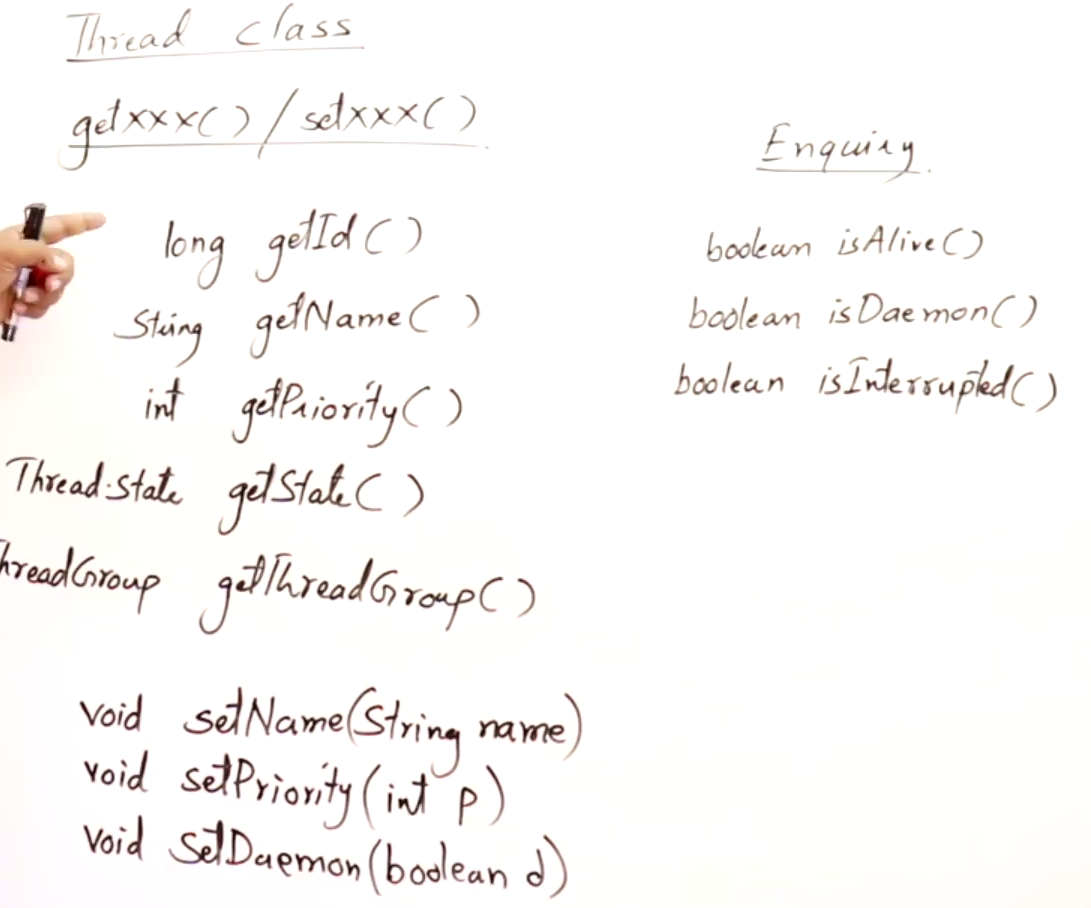 Thread class
getxxx() / setxxx()
long getId()
String getName()
int getPriority()
Thread.State getState()
hreadGroup getThreadGroup()
void setName(String name)
void setPriority(int p)
void setDaemon(boolean d)
Enquiry.
boolean isAlive()
boolean isDaemon()
boolean isInterrupted()